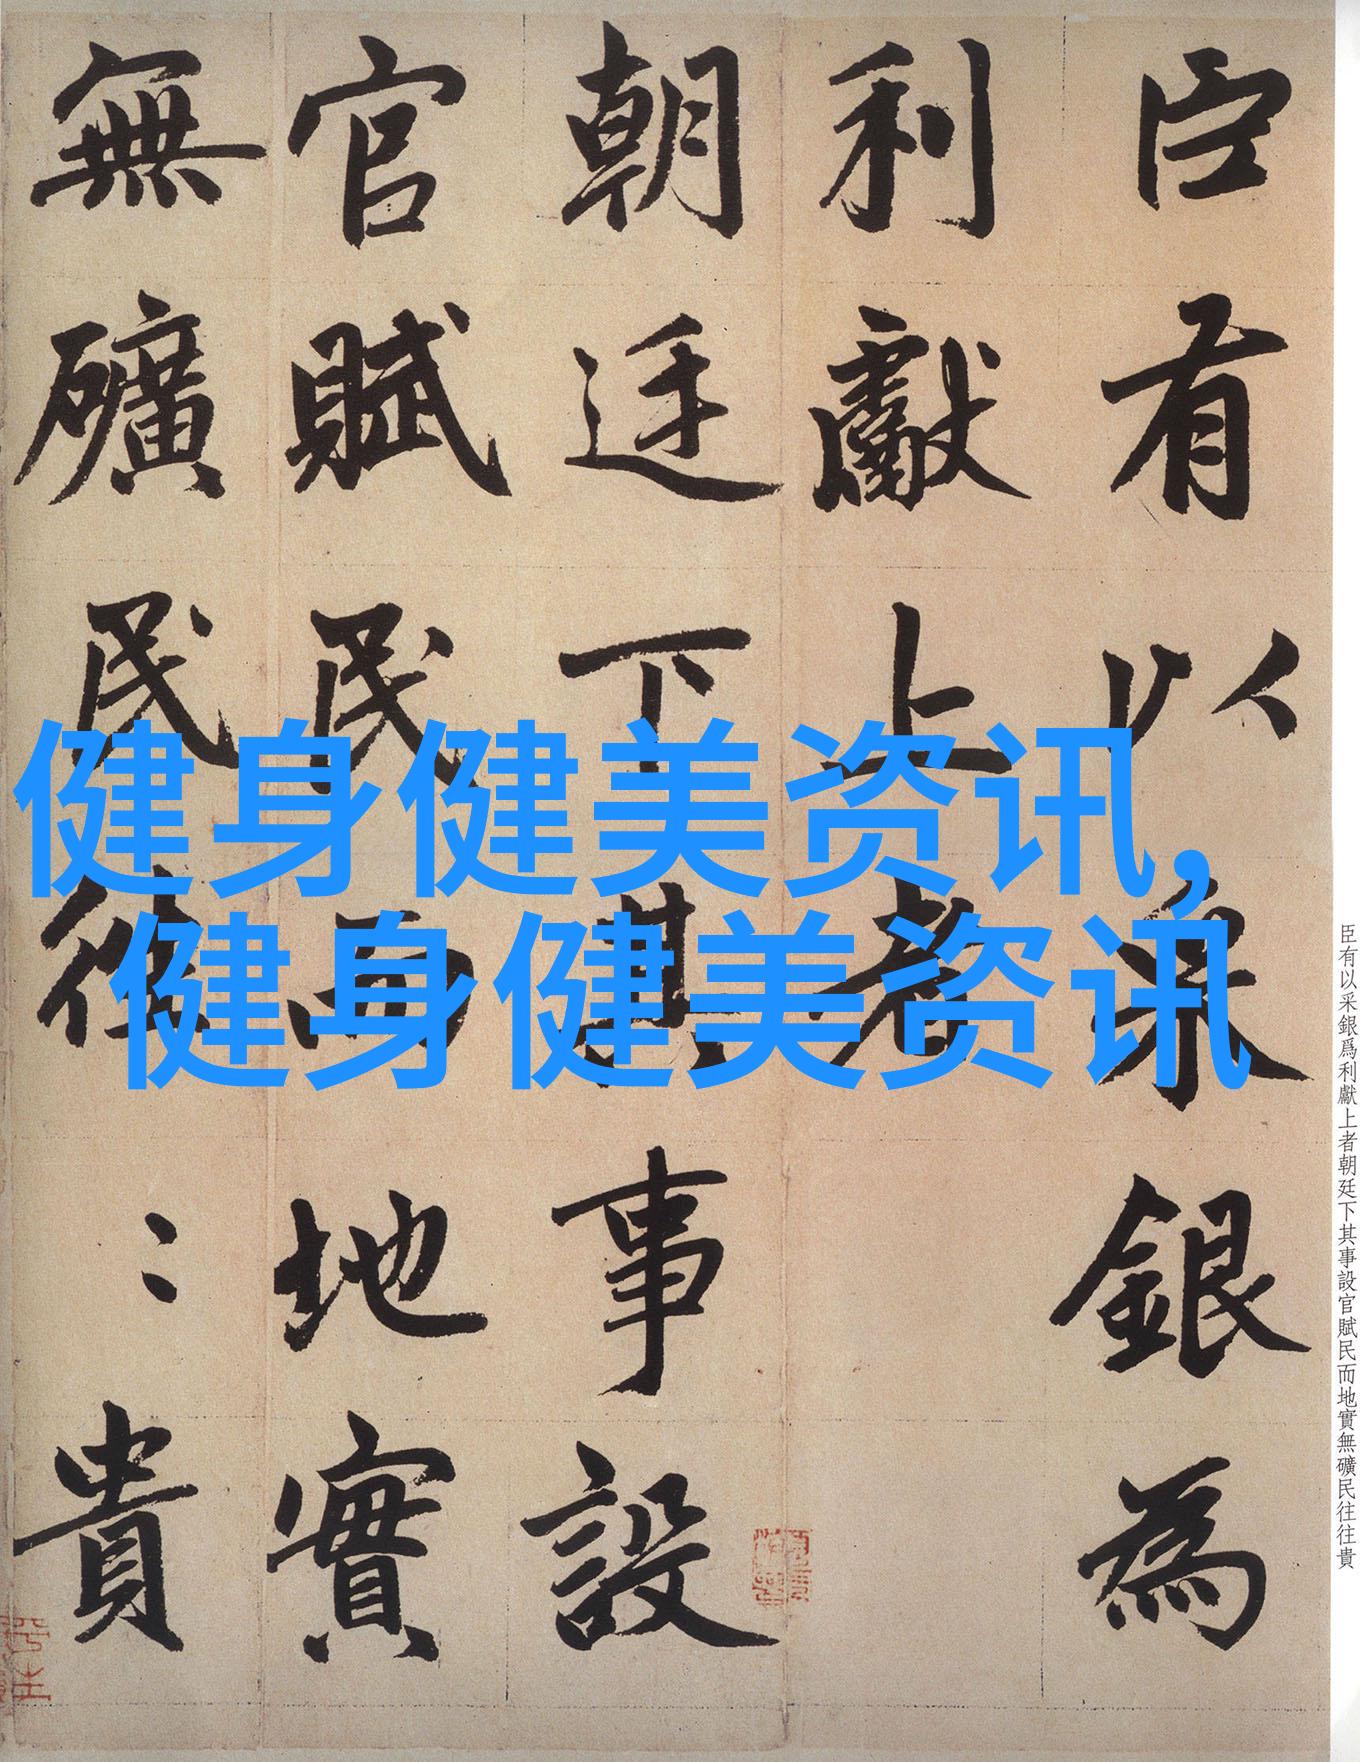 臣有以采銀為
利獻上者
朝廷下其事設
官賦民而地實
無礦民往〻貴
健身健美资讯,
健身健美资讯
臣有以采銀爲利獻上者朝廷下其事設官賦民而地實無礦民往往貴